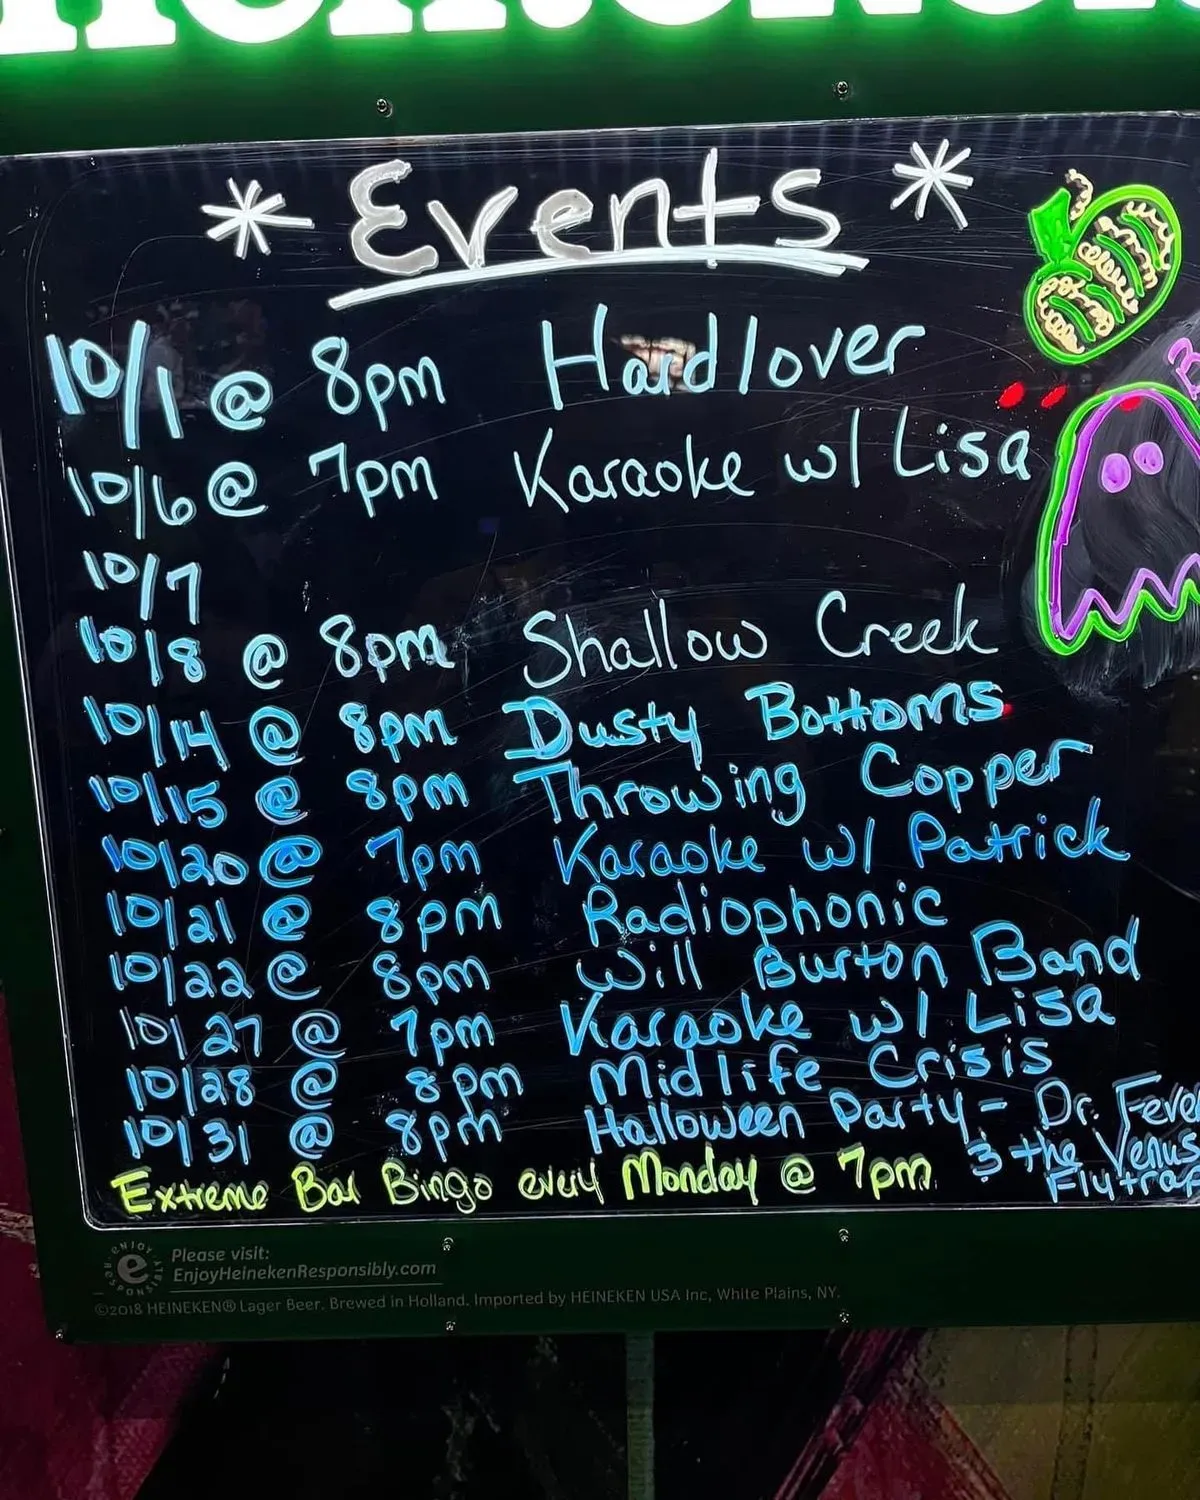 Heineken
* Events *
10/1 @ 8pm Hardlover
10/6 @ 7pm Karaoke w/ Lisa
10/7
10/8 @ 8pm Shallow Creek
10/14 @ 8pm Dusty Bottoms
10/15 @ 8pm Throwing Copper
10/20 @ 7pm Karaoke w/ Patrick
10/21 @ 8pm Radiophonic
10/22 @ 8pm Will Burton Band
10/27 @ 7pm Karaoke w/ Lisa
10/28 @ 8pm Midlife Crisis
10/31 @ 8pm Halloween Party - Dr. Feve
& the Venus
Flytrap
Extreme Bar Bingo every Monday @ 7pm
ENJOY RESPONSIBLY
e
Please visit:
EnjoyHeinekenResponsibly.com
©2018 HEINEKEN® Lager Beer. Brewed in Holland. Imported by HEINEKEN USA Inc, White Plains, NY.